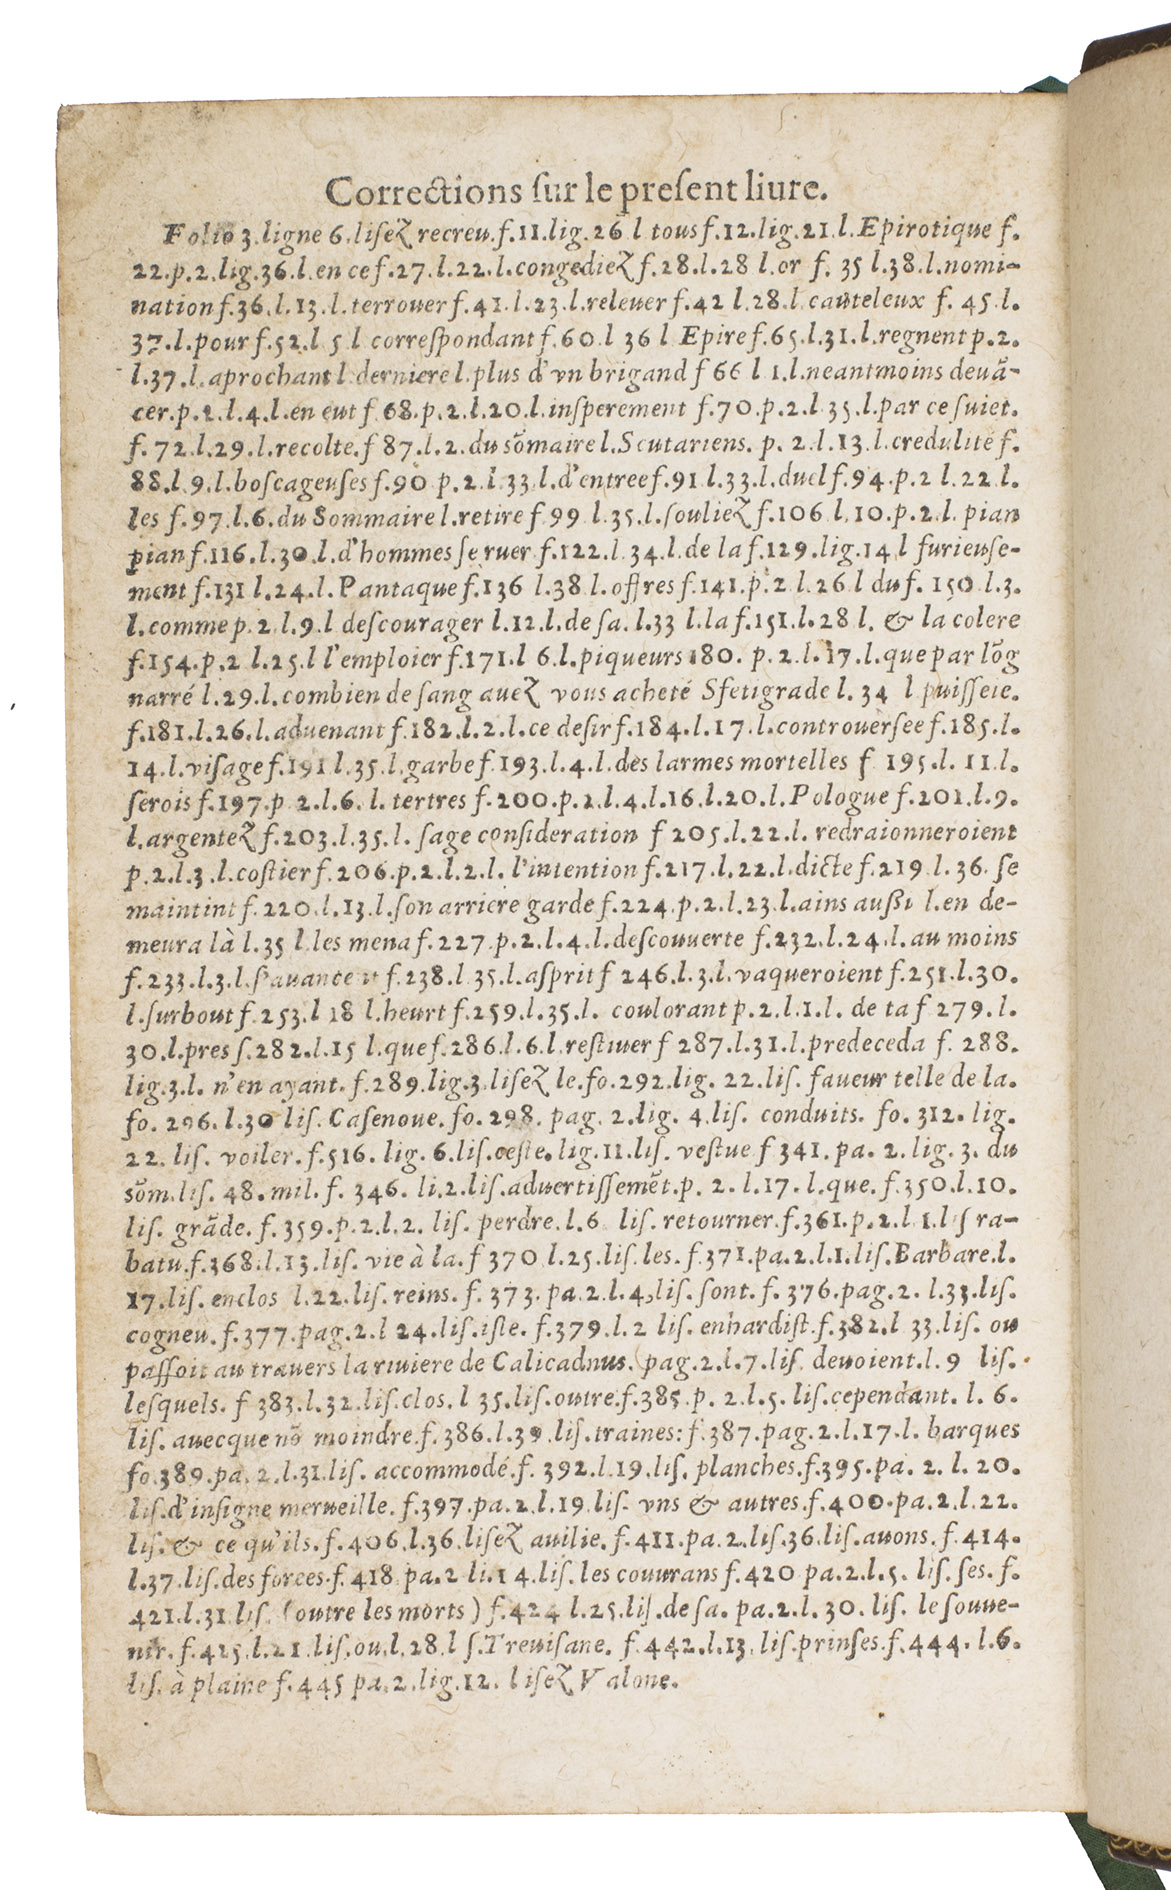 Corrections ſur le preſent liure.
Folio 3.ligne 6.liſez recreu.f.11.lig.26 l tous f.12.lig.21.l.Epirotique f.
22.p.2.lig.36.l.en ce f.27.l.22.l.congediez f.28.l.28 l.or f. 35 l.38.l.nomi-
nation f.36.l.13.l.terrouer f.41.l.23.l.releuer f.42 l.28.l.cauteleux f. 45.l.
37.l.pour f.52.l 5 l correſpondant f.60.l 36 l Epire f.65.l.31.l.regnent p.2.
l.37.l.aprochant l.derniere l.plus d'vn brigand f 66 l 1.l.neantmoins deuã-
cer.p.2.l.4.l.en eut f.68.p.2.l.20.l.inſperement f.70.p.2.l 35.l.par ce ſuiet.
f.72.l.29.l.recolte.f 87.l.2.du sõmaire l.Scutariens. p. 2.l.13.l.credulité f.
88.l.9.l.boſcageuſes f.90 p.2.l.33.l.d'entree f.91 l.33.l.duel f.94.p.2 l.22.l.
les f.97.l.6.du Sommaire l.retire f 99 l.35.l.ſouliez f.106 l.10.p.2.l. pian
pian f.116.l.30.l.d'hommes ſe ruer f.122.l.34.l.de la f.129.lig.14.l furieuſe-
ment f.131 l.24.l.Pantaque f.136 l.38 l.offres f.141.p.2 l.26 l du f. 150.l.3.
l.comme p.2 l.9.l deſcourager l.12.l.de ſa.l.33 l.la f.151.l.28 l. & la colere
f.154.p.2 l.25.l l'emploier f.171.l 6.l.piqueurs 180. p.2.l.17.l.que par lõg
narré l.29.l.combien de ſang auez vous acheté Sfetigrade l. 34 l puiſſeie.
f.181.l.26.l.aduenant f.182.l.2.l.ce deſir f.184.l.17.l.controuerſee f.185.l.
14.l.viſage f.191 l.35.l.garbe f.193.l.4.l.des larmes mortelles f 195.l. 11.l.
ſerois f.197.p 2.l.6. l. tertres f.200.p.2.l.4.l.16.l.20.l.Pologue f.201.l.9.
l.argentez f.203.l.35.l. ſage conſideration f 205.l.22.l. redraionneroient
p.2.l.3.l.coſtier f.206.p.2.l.2.l. l'intention f.217.l.22.l.dicte f.219.l.36. ſe
maintint f.220.l.13.l.ſon arriere garde f.224.p.2.l.23.l.ains auſſi l.en de-
meura là l.35 l.les mena f.227.p.2.l.4.l.deſcouuerte f.232.l.24.l.au moins
f.233.l.3.l. f.238.l 35.l.aſprit f 246.l.3.l.vaqueroient f.251.l.30.
l.ſurbout f.253.l 18 l.heurt f.259.l.35.l. coulorant p.2.l.1.l. de ta f 279.l.
30.l.pres f.282.l.15 l.que f.286.l.6.l.reſtiuer f 287.l.31.l.predeceda f. 288.
lig.3.l. n'en ayant. f.289.lig.3.liſez le.fo.292.lig. 22.liſ. faueur telle de la.
fo. 296.l.30 liſ. Caſenoue. fo. 298. pag. 2.lig. 4.liſ. conduits. fo. 312. lig.
22. liſ. voiler. f.516. lig. 6.liſ.ceſte.lig.11.liſ. veſtue f 341. pa. 2. lig. 3. du
sõm.liſ. 48.mil. f. 346. li.2.liſ.aduertiſſemẽt.p. 2.l.17.l.que.f.350.l.10.
liſ. grãde. f.359.p.2.l.2. liſ. perdre.l.6 liſ. retourner.f.361.p.2.l.1.liſ ra-
batu.f.368.l.13.liſ. vie à la.f 370.l.25.liſ.les.f.371.pa.2.l.1.liſ.Barbare.l.
17.liſ. enclos l.22.liſ. reins. f. 373. pa.2.l.4,liſ. ſont. f. 376.pag.2. l.33.liſ.
cogneu. f.377.pag.2.l 24.liſ.iſle. f.379.l.2 liſ. enhardiſt.f.382.l 33.liſ. ou
paſſoit au trauers la riuiere de Calicadnus. pag.2.l.7.liſ. deuoient.l.9 liſ.
leſquels. f 383.l.32.liſ.clos.l 35.liſ.outre.f.385.p. 2.l.5. liſ.cependant. l. 6.
liſ. auecque nõ moindre.f.386.l.39.liſ.traines: f.387.pag.2.l.17.l. barques
fo.389.pa.2.l.31.liſ. accommodé.f. 392.l.19.liſ. planches.f.395.pa. 2. l. 20.
liſ.d'inſigne merueille. f.397.pa.2.l.19 liſ. vns & autres.f.400.pa.2.l.22.
liſ. & ce qu'ils.f.406.l.36.liſez auilie. f.411.pa.2.liſ.36.liſ.auons. f.414.
l.37.liſ.des forces.f.418.pa.2 li.14.liſ.les couurans f.420 pa.2.l.5. liſ. ſes. f.
421.l.31 liſ. (outre les morts) f.424 l.25.liſ.de ſa. pa.2.l. 30. liſ. le ſouue-
nir. f.425.l.21.liſ.ou.l.28.l ſ.Treuiſane. f.442.l.13.liſ.prinſes.f.444.l.6.
liſ. à plaine f.445 pa.2.lig.12. liſez Valone.